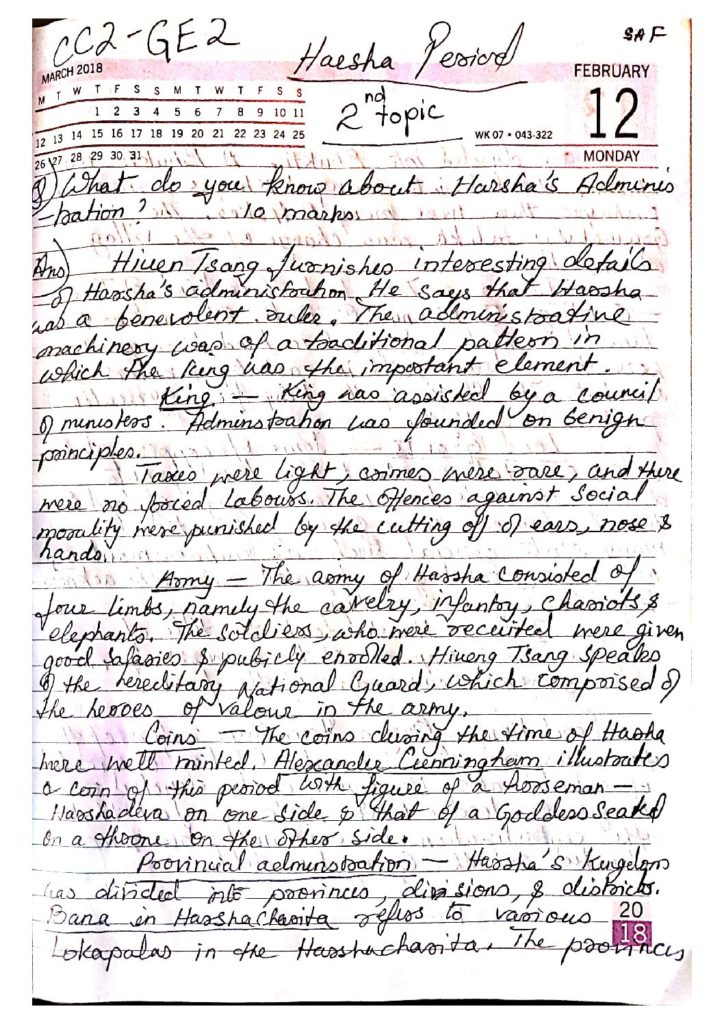 CC2-GE2
Harsha Period
SAF
MARCH 2018
M T W T F S S M T W T F S S
1 2 3 4 5 6 7 8 9 10 11
12 13 14 15 16 17 18 19 20 21 22 23 24 25
26 27 28 29 30 31
2nd topic
WK 07 • 043-322
FEBRUARY
12
MONDAY
Q) What do you know about Harsha's Adminis
-tration? 10 marks
Ans) Hiuen Tsang furnishes interesting details
of Harsha's administration. He says that Harsha
was a benevolent ruler. The administrative
machinery was of a traditional pattern in
which the King was the important element.
King. — King was assisted by a council
of ministers. Adminstration was founded on benign
principles.
Taxes were light, crimes were rare, and there
were no forced Labours. The offences against Social
morality were punished by the cutting off of ears, nose &
hands.
Army — The army of Harsha consisted of
four limbs, namely the cavelry, infantry, chariots &
elephants. The soldiers, who were recuited were given
good Salaries & pubicly enrolled. Hiueng Tsang speaks
of the hereditary National Guard, which comprised of
the heroes of valour in the army.
Coins — The coins during the time of Harsha
were well minted. Alexander Cunningham illustrates
a coin of this period with figure of a horseman —
Harshadeva on one side & that of a Goddess Seated
on a throne on the other side.
Provincial adminstration — Harsha's Kingdom
was divided into provinces, divisions, & districts.
Bana in Harshacharita refers to various
Lokapalas in the Harshacharita. The provinces
20
18